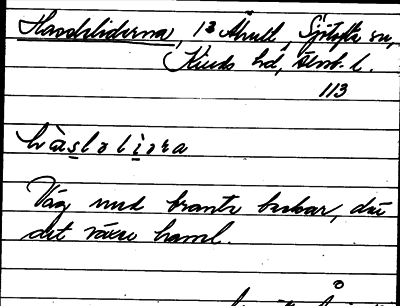 Hasseliderna, 13 Åmull, Sjötofta sn,
Kinds hd, Älvsb. l.
113
hàslolìora
Väg med branta backar, där
det växer hassel.